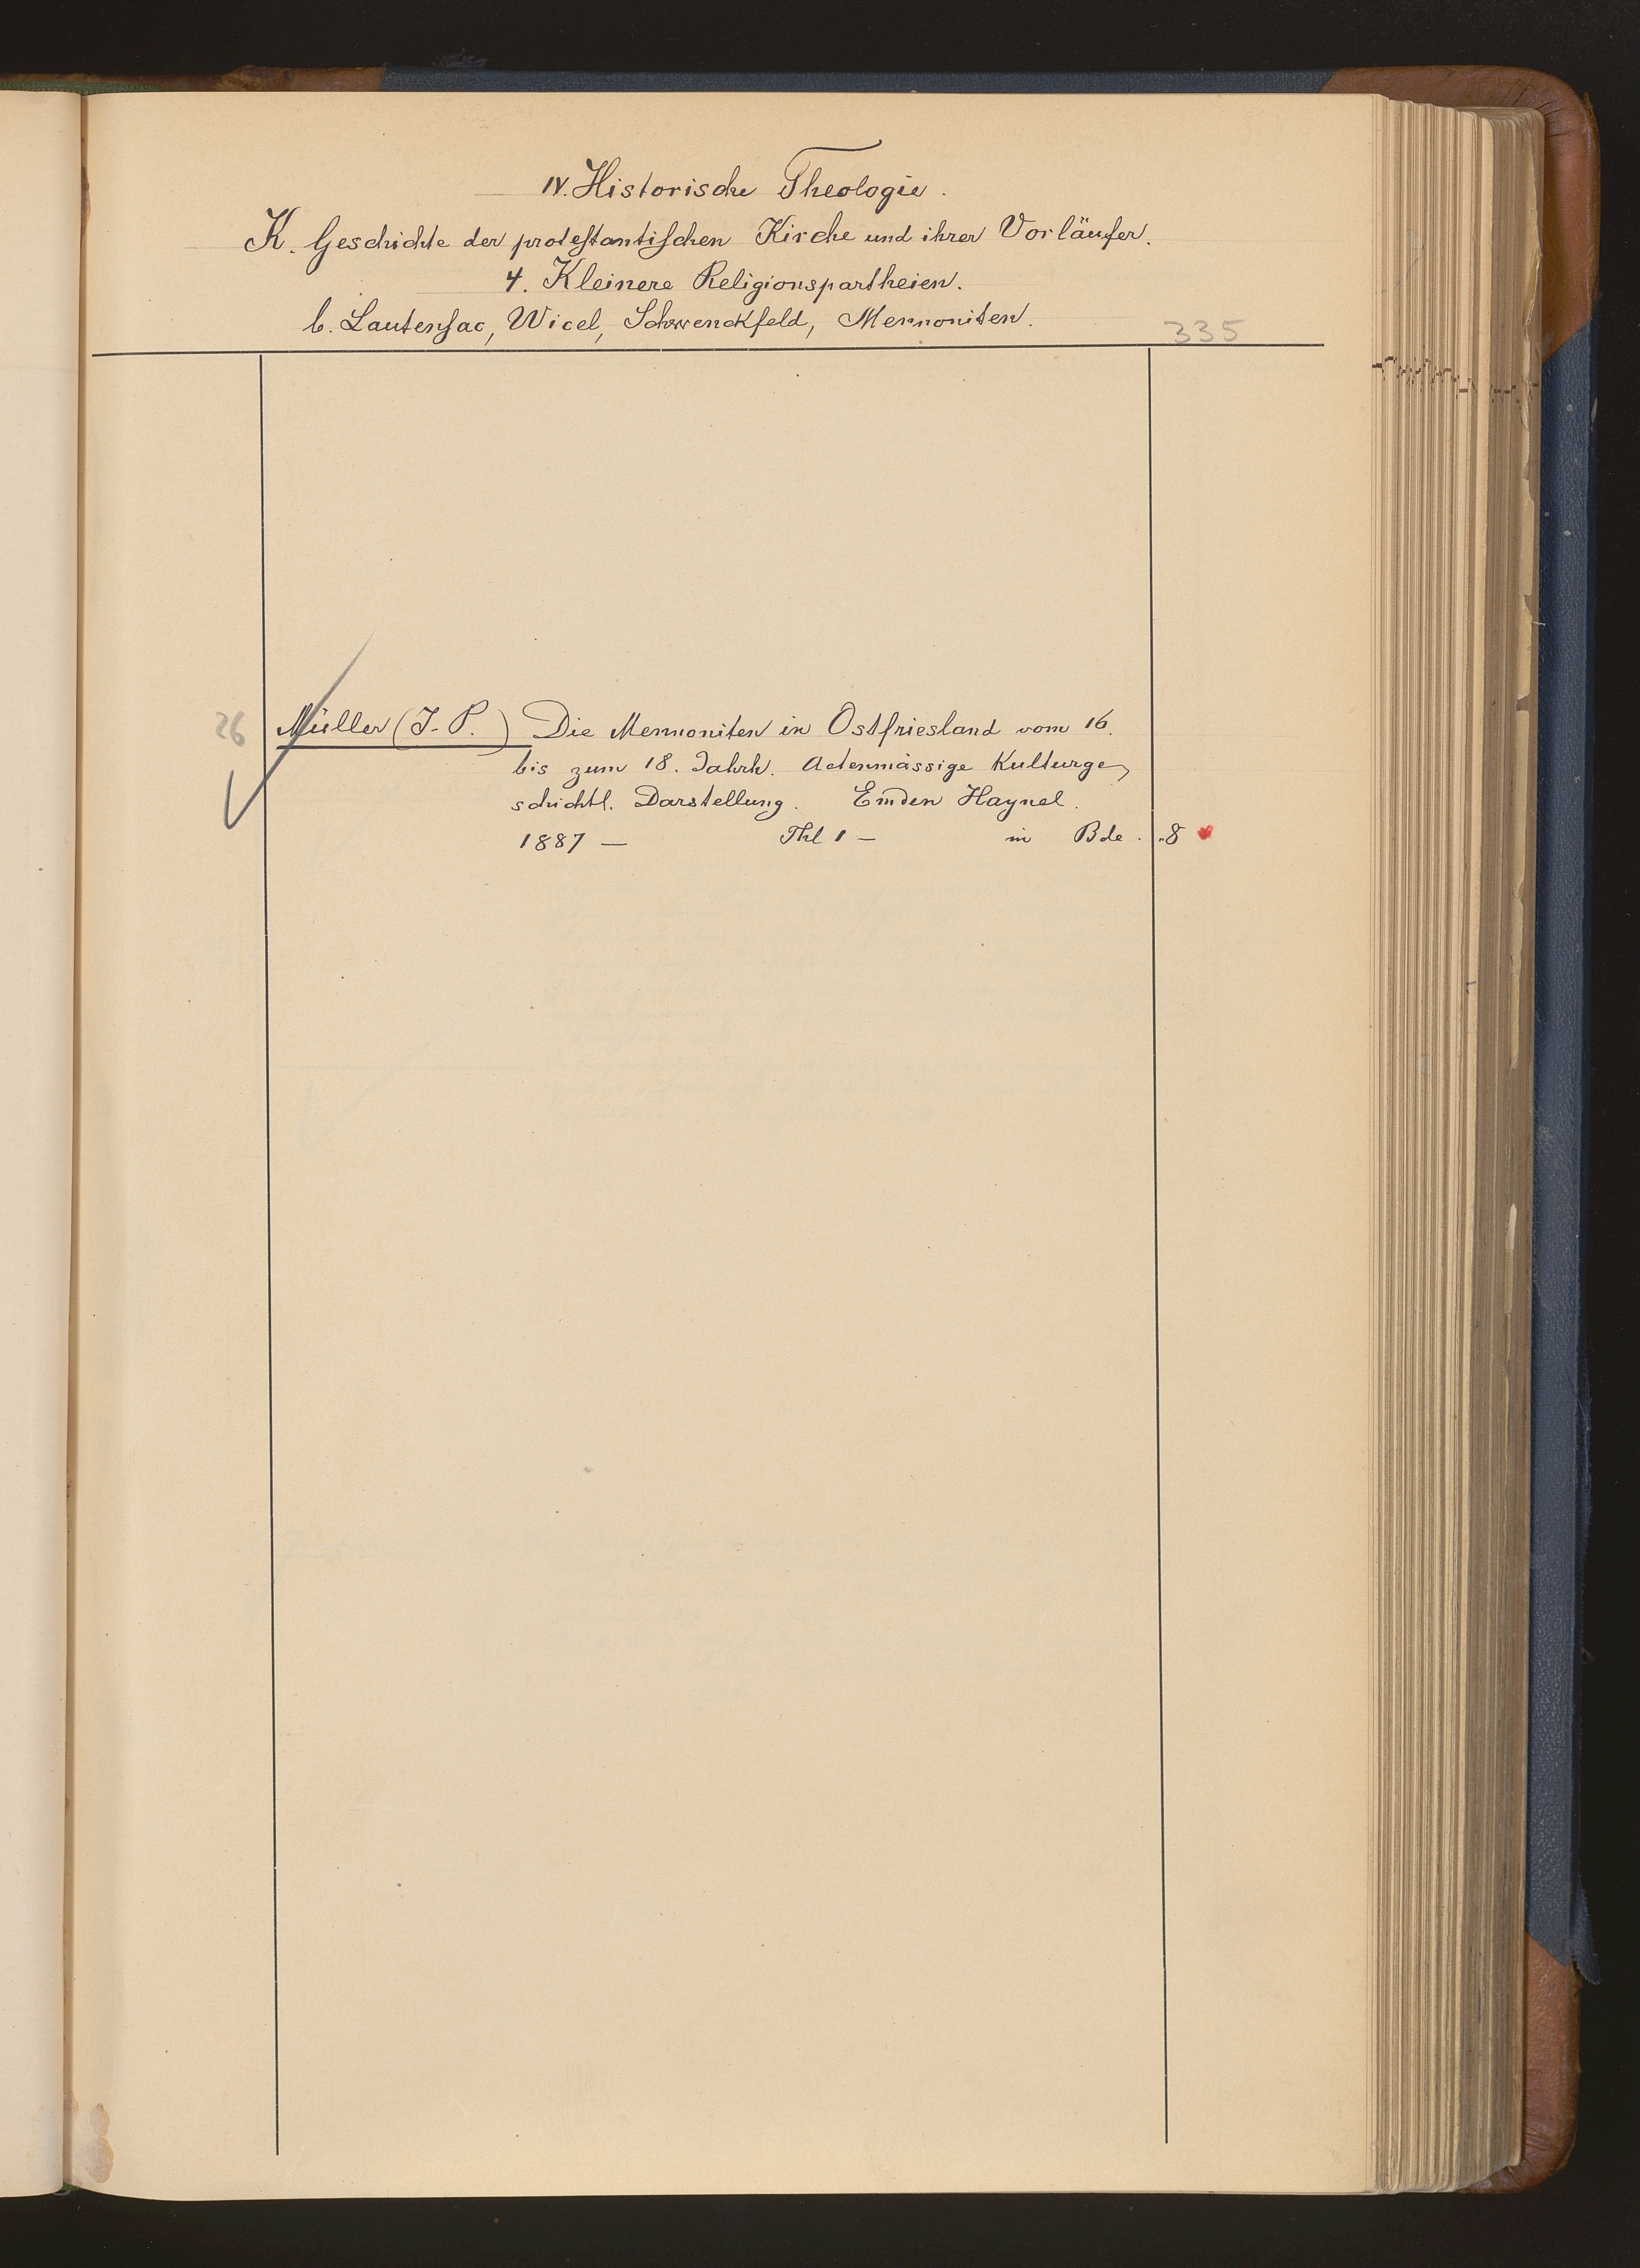 IV. Historische Theologie.
K. Geschichte der protestantischen Kirche und ihrer Vorläufer.
4. Kleinere Religionspartheien.
b. Lautensac, Wicel, Schwenckfeld, Mennoniten.
335
26 Müller (J. P.) Die Mennoniten in Ostfriesland vom 16.
bis zum 18. Jahrh. Actenmässige Kulturge-
schichtl. Darstellung. Emden Haynel.
1887 — Thl 1 — in Bde. 8